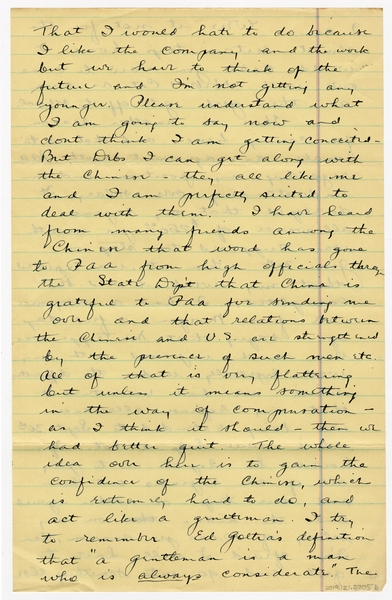 That I would hate to do because
I like the company and the work
but we have to think of the
future and I'm not getting any
younger. Please understand what
I am going to say now and
dont think I am getting conceited -
But Debs I can get along with
the Chinese - they all like me
and I am perfectly suited to
deal with them. I have heard
from many friends among the
Chinese that word has gone
to PAA from high officials through
the State Dept that China is
grateful to PAA for sending me
over and that relations between
the Chinese and U.S. are strengthened
by the presence of such men etc.
All of that is very flattering
but unless it means something
in the way of compensation -
as I think it should - then we
had better quit. The whole
idea over here is to gain the
confidence of the Chinese, which
is extremely hard to do, and
act like a gentleman. I try
to remember Ed Goltra's definition
that "a gentleman is a man
who is always considerate." The